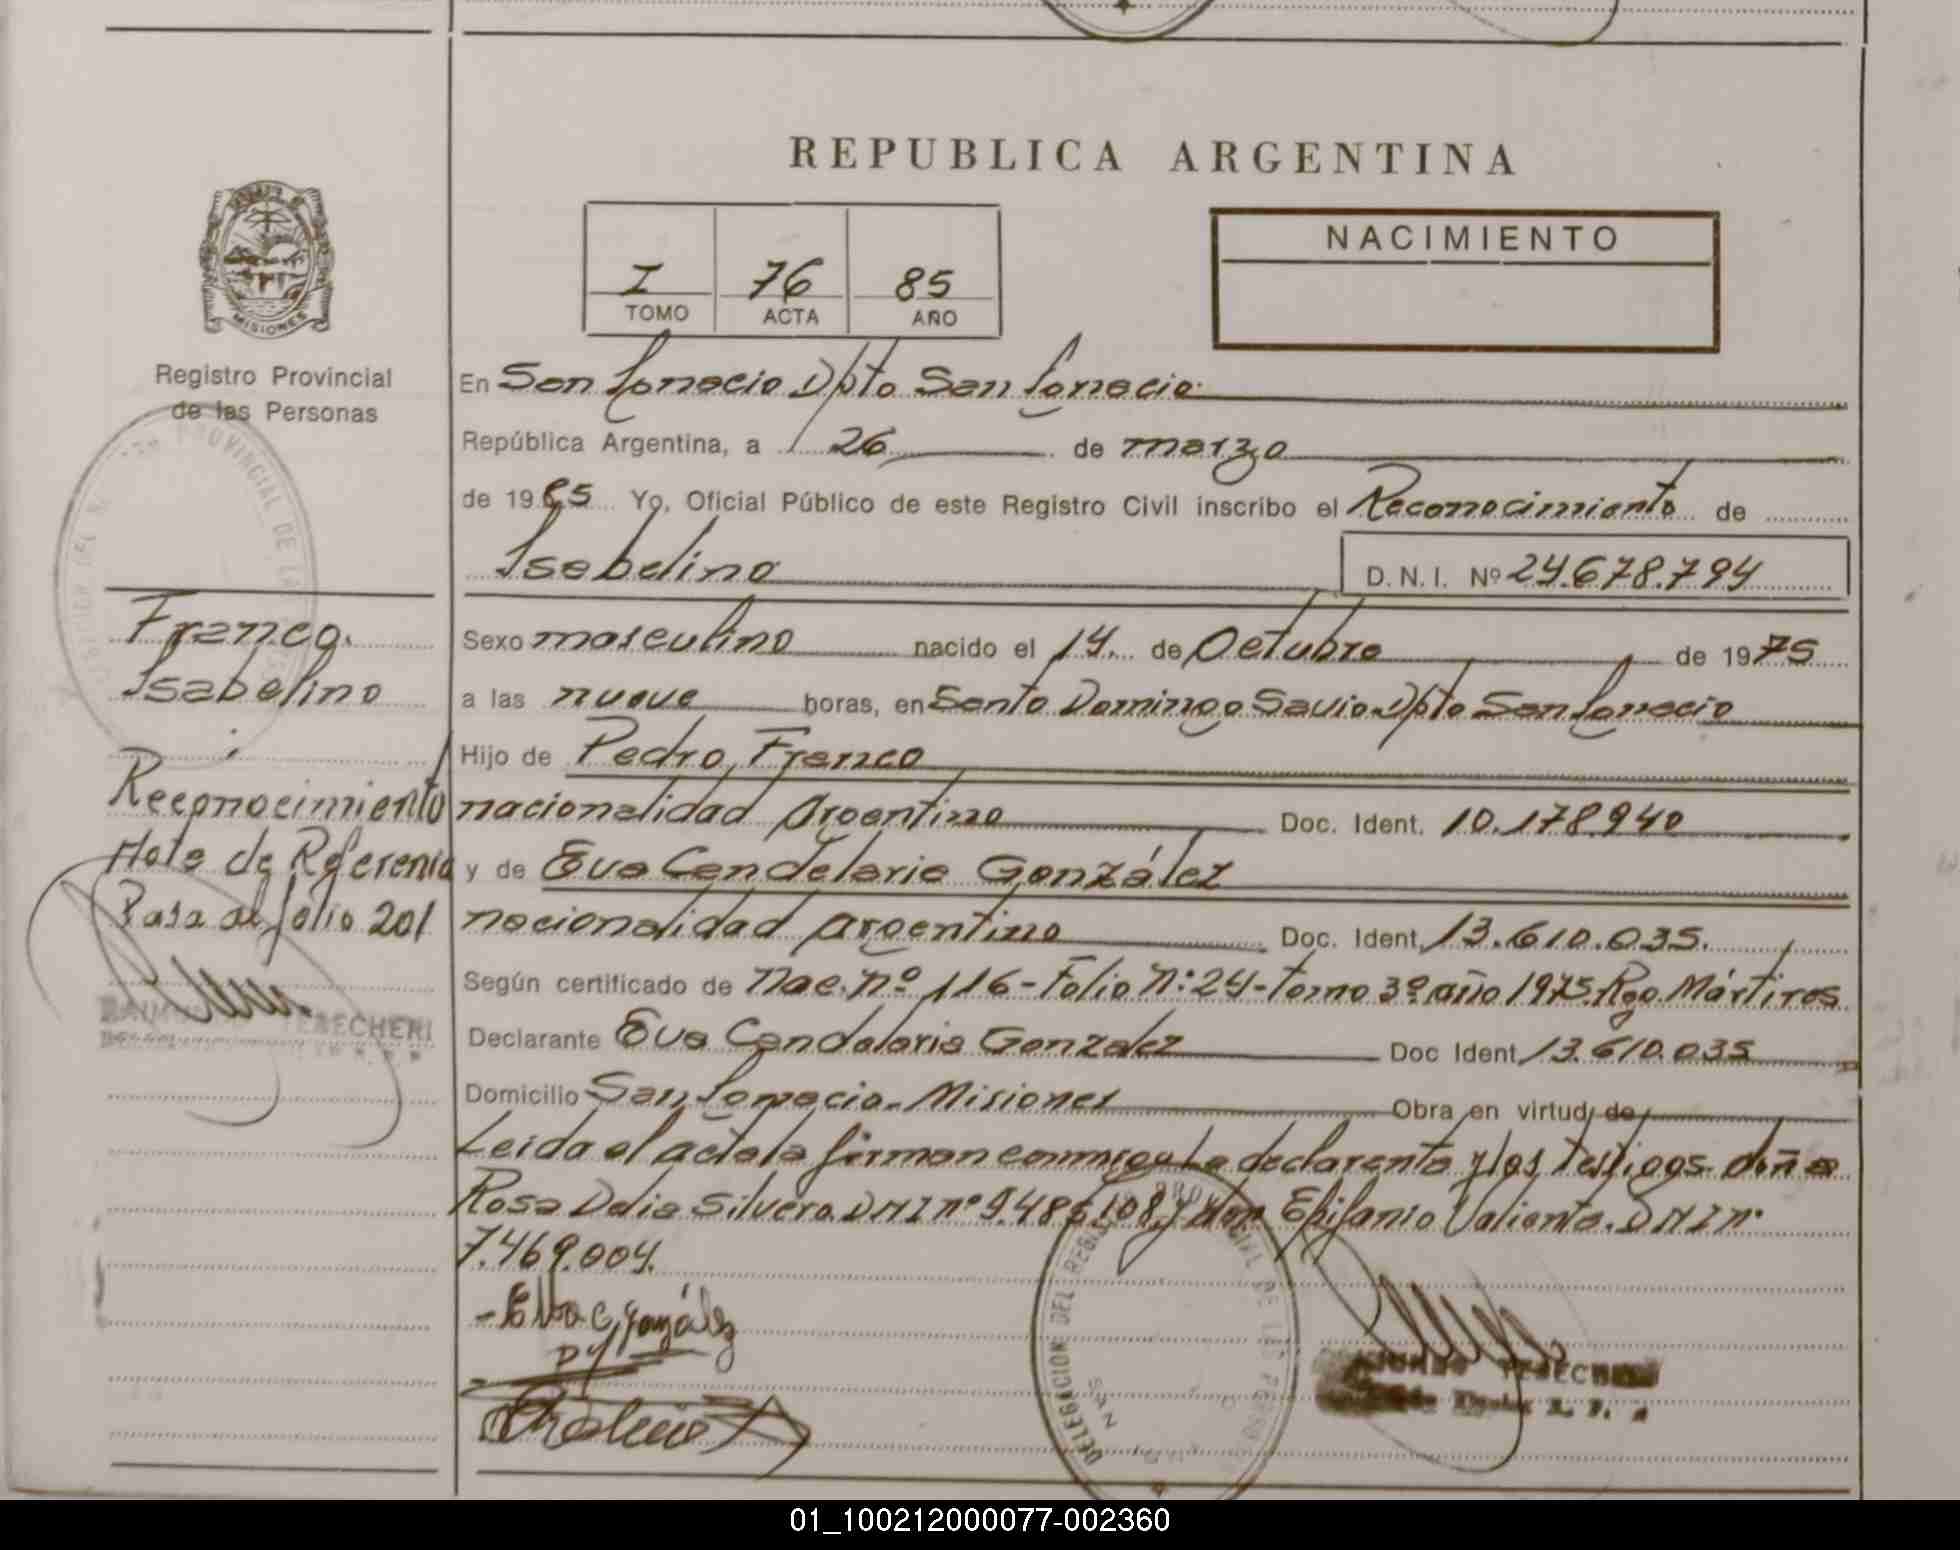 REPUBLICA ARGENTINA
NACIMIENTO
I 76 85
TOMO ACTA AÑO
MISIONES
Registro Provincial
de las Personas
En San Ignacio Dpto San Ignacio
República Argentina, a 26 de marzo
de 1985 Yo, Oficial Público de este Registro Civil inscribo el Reconocimiento de
Isabelino
D.N.I. Nº 24.678.794
Franco.
Isabelino
Sexo masculino nacido el 14 de Octubre de 1975
a las nueve horas, en Santo Domingo Savio Dpto San Ignacio
Hijo de Pedro Franco
nacionalidad Argentino Doc. Ident. 10.178.940
y de Eva Candelaria González
nacionalidad argentino Doc. Ident. 13.610.035.
Según certificado de Nac. nº 116 - Folio Nº: 24 - tomo 3º año 1975 Rgo. Mártires
Declarante Eva Candelaria Gonzalez Doc Ident 13.610.035
Domicilio San Ignacio - Misiones Obra en virtud de
Leída el acta la firman conmigo la declarante y los testigos doña
Rosa Delia Silvero. DNI nº 9.486.108 y don Epifanio Valiente. DNI nº
7.469.004.
Reconocimiento
Nota de Referencia
Pasa al folio 201
TESECHERI
- Elva C. González
DELEGACION DEL REGISTRO PROVINCIAL DE LAS PERSONAS
SAN
01_100212000077-002360